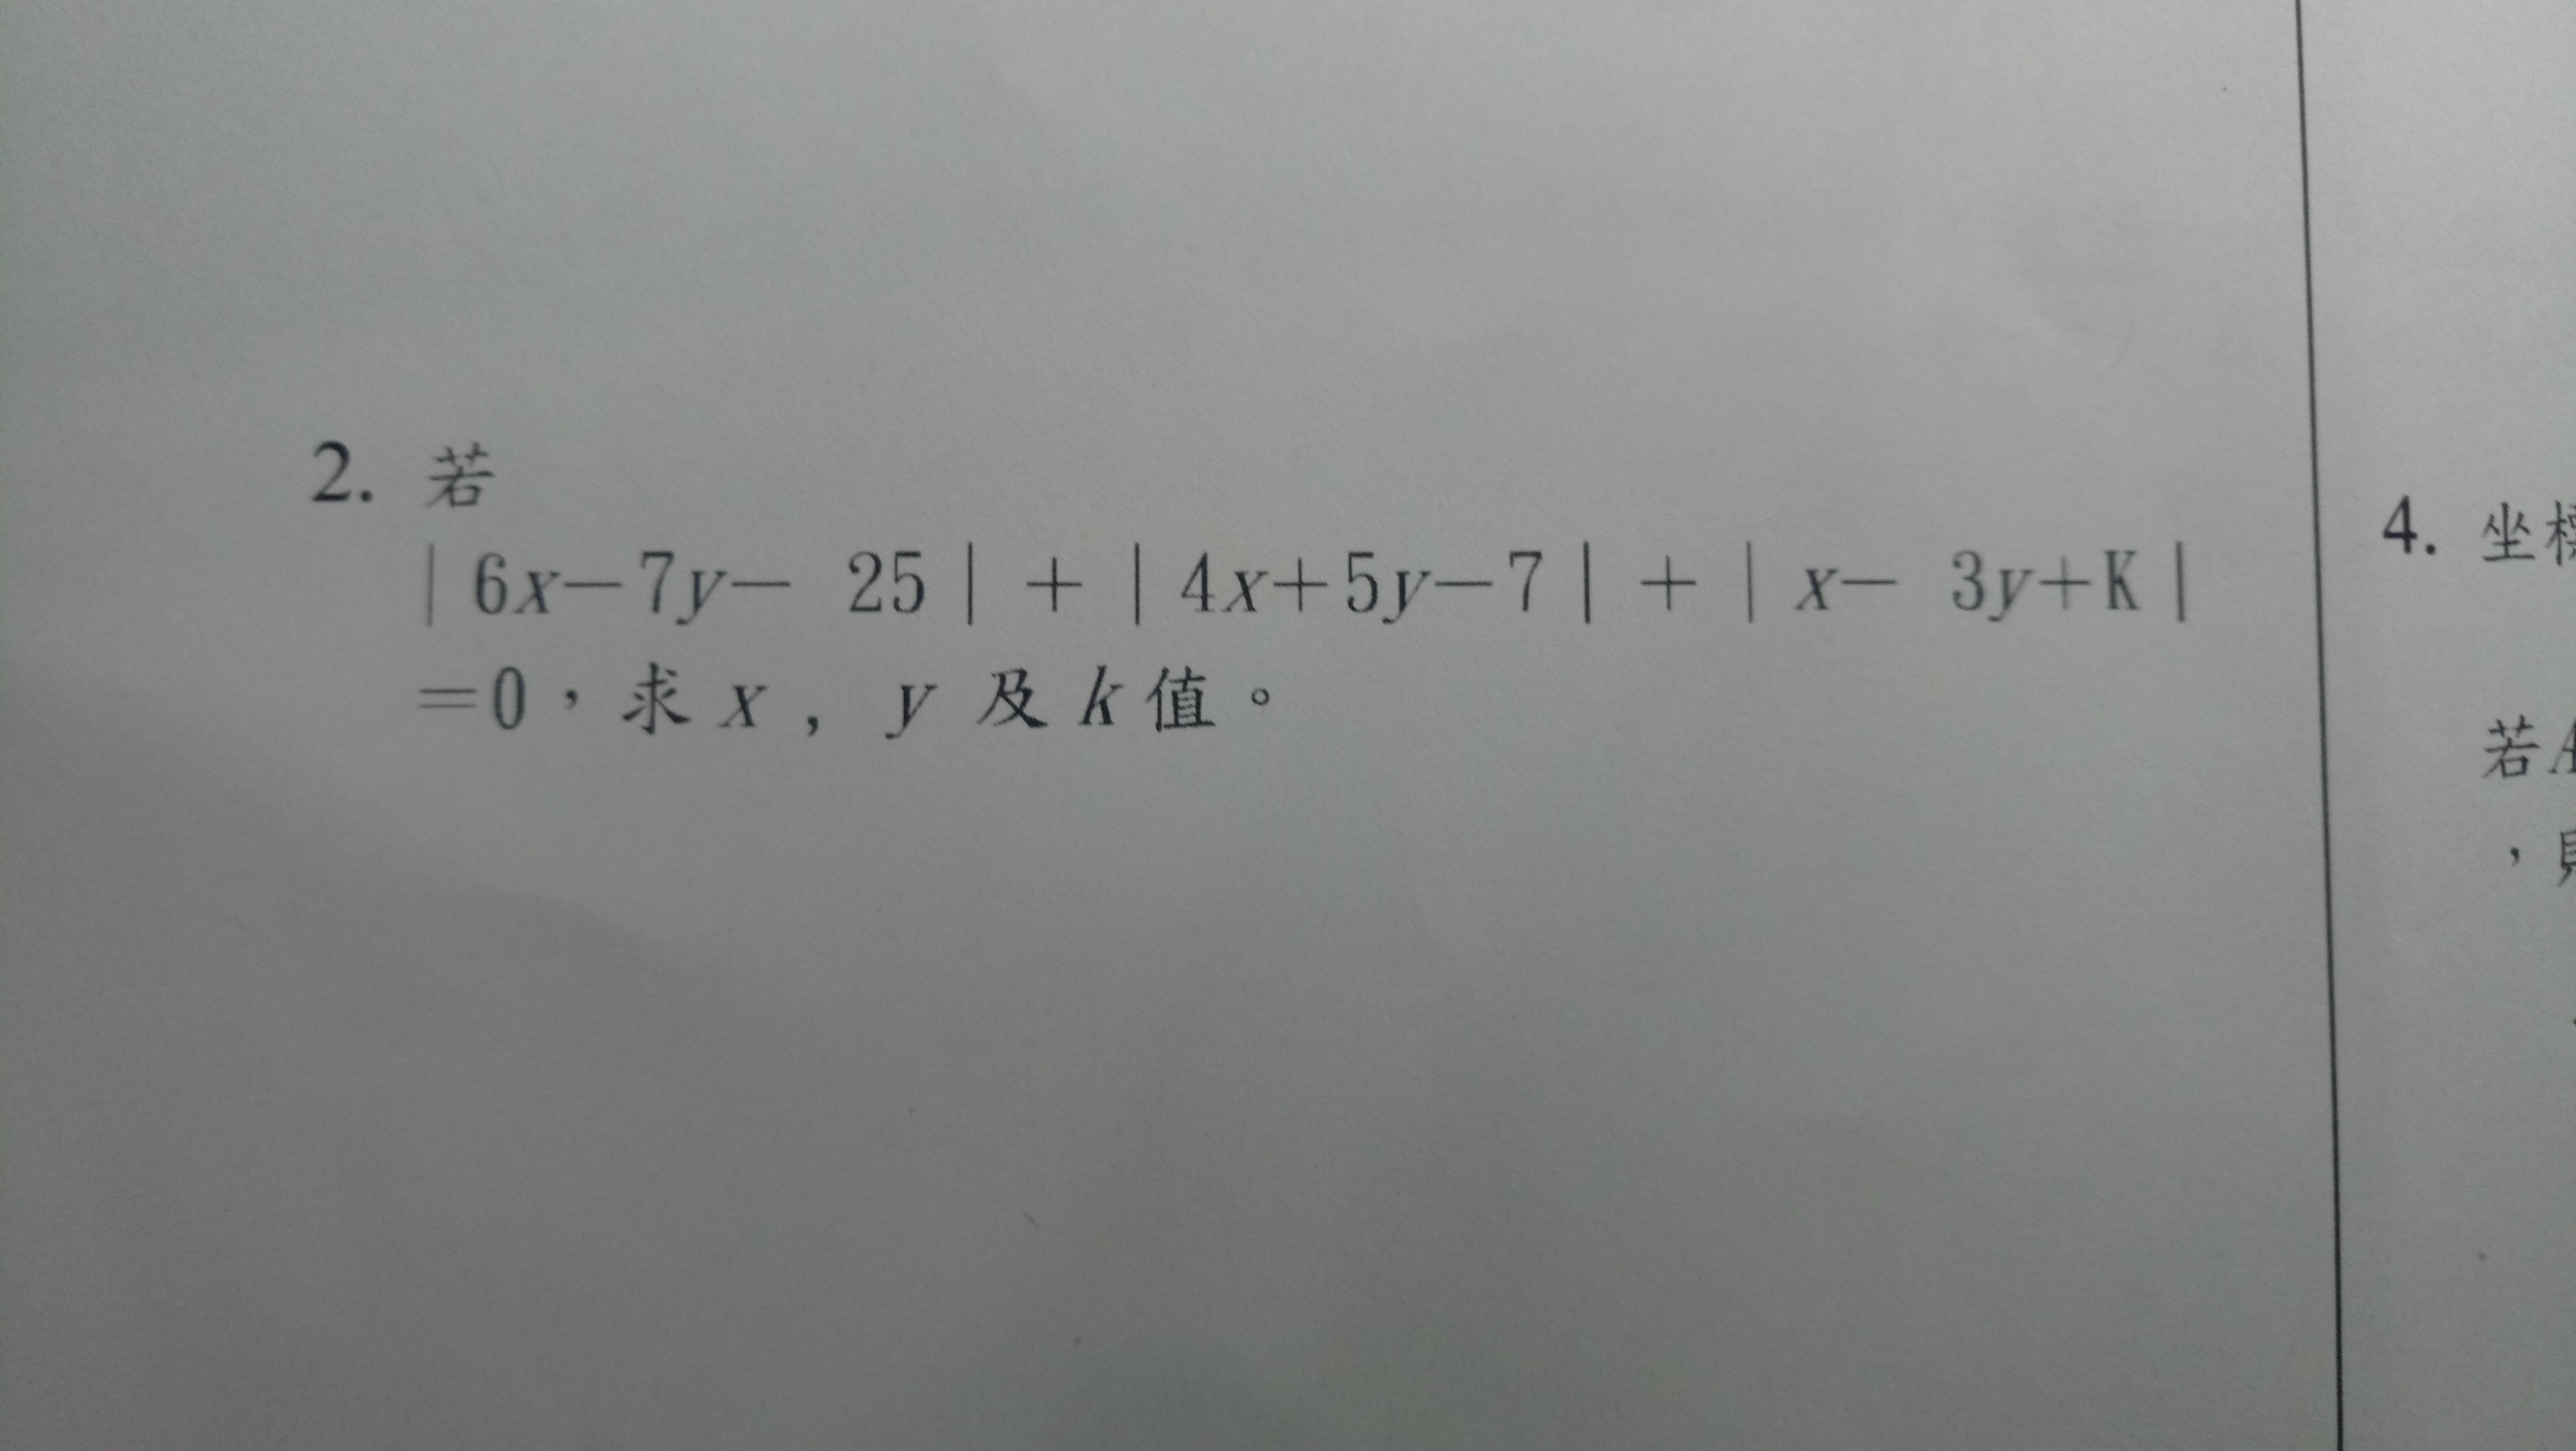 2. 若
| 6x－7y－ 25 | ＋ | 4x＋5y－7 | ＋ | x－ 3y＋K |
＝0，求 x , y 及 k 值。
4. 坐
若
，